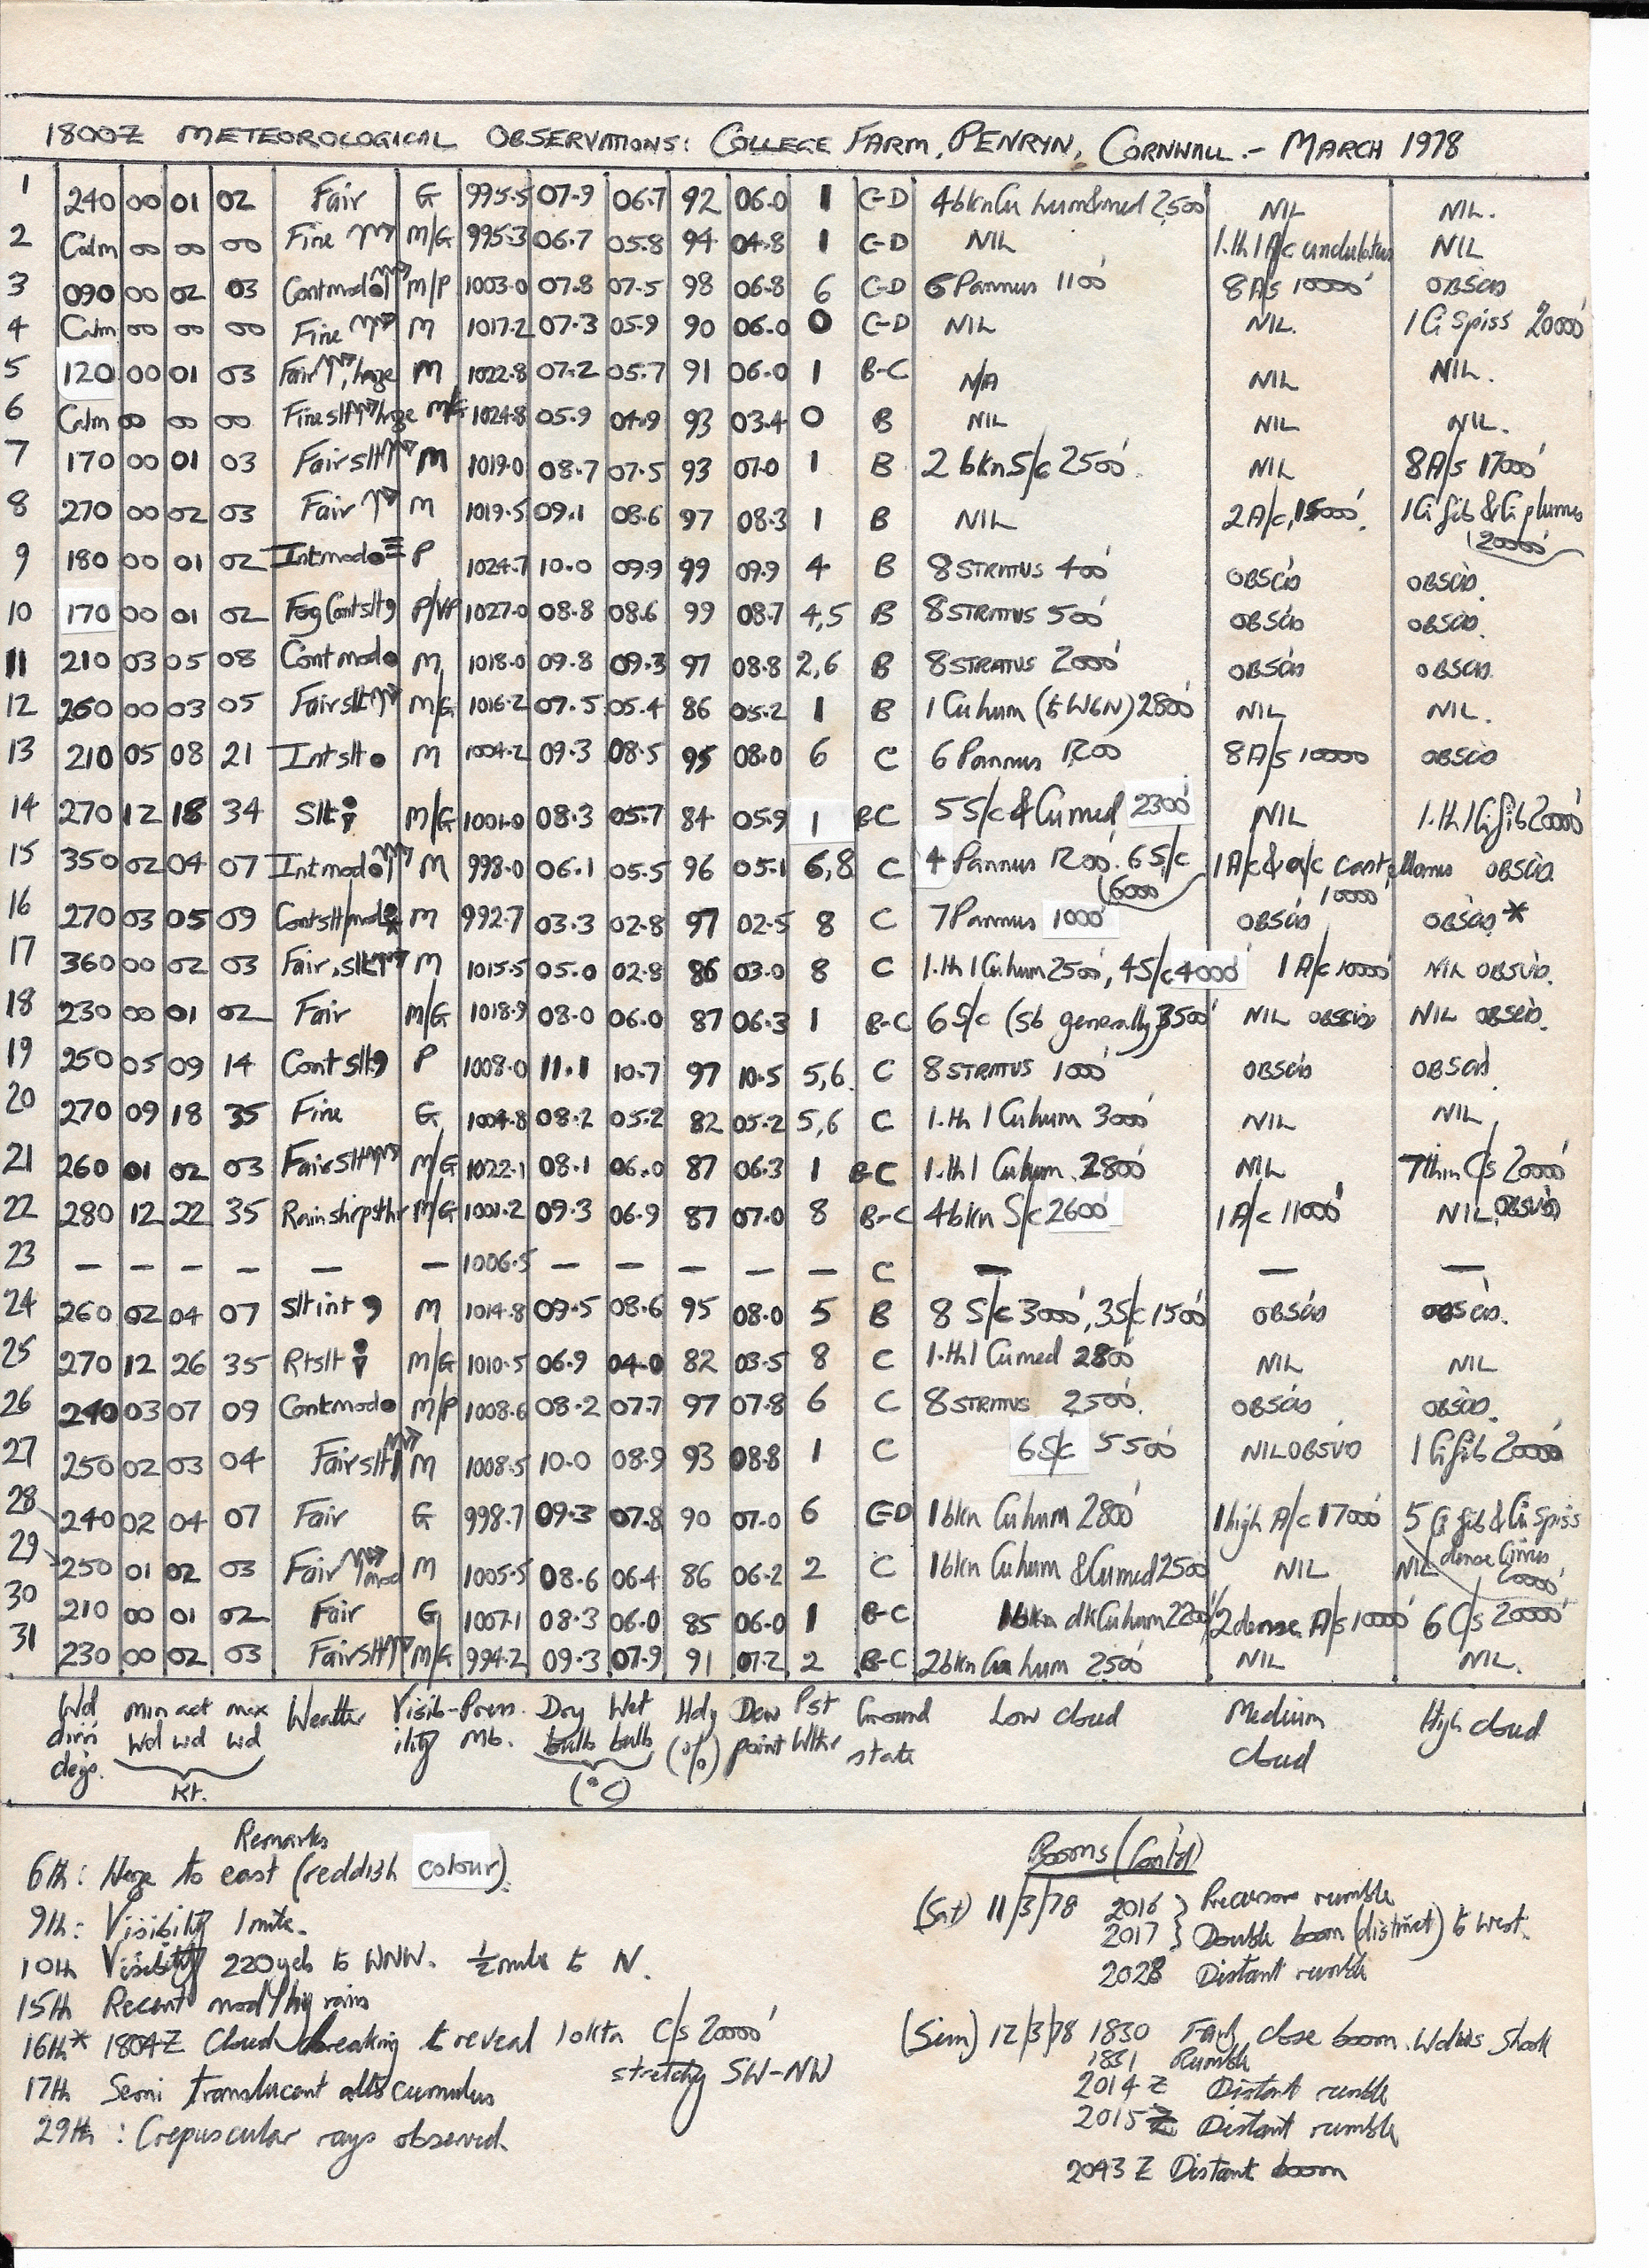 1800Z METEOROLOGICAL OBSERVATIONS: COLLEGE FARM, PENRYN, CORNWALL.- MARCH 1978
1 240 00 01 02 Fair G 995.5 07.9 06.7 92 06.0 1 C-D 4bkn Cu hum & med 2500' NIL NIL.
2 Calm 00 00 00 Fine M/G 995.3 06.7 05.8 94 04.8 1 C-D NIL 1.th 1 A/c undulatus NIL
3 090 00 02 03 Contmod M/P 1003.0 07.8 07.5 98 06.8 6 C-D 6 Pannus 1100' 8A/s 10000' OBSCD
4 Calm 00 00 00 Fine M 1017.2 07.3 05.9 90 06.0 0 C-D NIL NIL. 1 Ci Spiss 20000'
5 120 00 01 03 Fair, haze M 1022.8 07.2 05.7 91 06.0 1 B-C N/A NIL NIL.
6 Calm 00 00 00 Fine slt haze M/G 1024.8 05.9 04.9 93 03.4 0 B NIL NIL NIL.
7 170 00 01 03 Fair slt M 1019.0 08.7 07.5 93 07.0 1 B 2 bkn S/c 2500' NIL 8A/s 17000'
8 270 00 02 03 Fair M 1019.5 09.1 08.6 97 08.3 1 B NIL 2A/c, 15000'. 1Ci fib & Ci plumus 20000'
9 180 00 01 02 Intmod ● ≡ P 1024.7 10.0 09.9 99 09.9 4 B 8 STRATUS 400' OBSCD OBSCD.
10 170 00 01 02 Fog Contslt P/VP 1027.0 08.8 08.6 99 08.7 4,5 B 8 STRATUS 500' OBSCD OBSCD.
11 210 03 05 08 Cont mod ● M 1018.0 09.8 09.3 97 08.8 2,6 B 8 STRATUS 2000' OBSCD OBSCD.
12 260 00 03 05 Fair slt M/G 1016.2 07.5 05.4 86 05.2 1 B 1 Cu hum (to W&N) 2800' NIL NIL.
13 210 05 08 21 Int slt ● M 1004.2 09.3 08.5 95 08.0 6 C 6 Pannus 1200' 8A/s 10000 OBSCD
14 270 12 18 34 Slt M/G 1001.0 08.3 05.7 84 05.9 1 B-C 5 S/c & Cu med 2300' NIL 1.th 1 Ci fib 20000'
15 350 02 04 07 Intmod ● M 998.0 06.1 05.5 96 05.1 6,8 C 4 Pannus 1200'. 6 S/c 6000' 1A/c & a/c castellanus 10000' OBSCD.
16 270 03 05 09 Contslt/mod M 992.7 03.3 02.8 97 02.5 8 C 7 Pannus 1000' OBSCD OBSCD *
17 360 00 02 03 Fair, slt M 1015.5 05.0 02.8 86 03.0 8 C 1.th 1 Cu hum 2500', 4S/c 4000' 1 A/c 10000' NIL OBSVD.
18 230 00 01 02 Fair M/G 1018.9 08.0 06.0 87 06.3 1 B-C 6 S/c (Sb generally) 3500' NIL OBSCD NIL OBSCD.
19 250 05 09 14 Cont slt P 1008.0 11.1 10.7 97 10.5 5,6 C 8 STRATUS 1000' OBSCD OBSCD.
20 270 09 18 35 Fine G 1004.8 08.2 05.2 82 05.2 5,6 C 1.th 1 Cu hum 3000' NIL NIL
21 260 01 02 03 Fair slt M/G 1022.1 08.1 06.0 87 06.3 1 B-C 1.th 1 Cu hum 2800' NIL 7 thin C/s 20000'
22 280 12 22 35 Rain M/G 1001.2 09.3 06.9 87 07.0 8 B-C 4bkn S/c 2600' 1A/c 11000' NIL OBSVD
23 — — — — — — 1006.5 — — — — — C — — —
24 260 02 04 07 slt int M 1014.8 09.5 08.6 95 08.0 5 B 8 S/c 3000', 3S/c 1500' OBSCD OBSCD.
25 270 12 26 35 Rtslt M/G 1010.5 06.9 04.0 82 03.5 8 C 1.th 1 Cu med 2800' NIL NIL
26 240 03 07 09 Contmod ● M/P 1008.6 08.2 07.7 97 07.8 6 C 8 STRATUS 2500'. OBSCD OBSCD.
27 250 02 03 04 Fair slt M 1008.5 10.0 08.9 93 08.8 1 C 6S/c 5500' NIL OBSVD 1 Ci fib 20000
28 240 02 04 07 Fair G 998.7 09.3 07.8 90 07.0 6 C-D 1 bkn Cu hum 2800' 1 high A/c 17000' 5 Ci fib & Ci Spiss dense Cirrus 20000'
29 250 01 02 03 Fair mod M 1005.5 08.6 06.4 86 06.2 2 C 1 bkn Cu hum & Cu med 2500' NIL NIL
30 210 00 01 02 Fair G 1007.1 08.3 06.0 85 06.0 1 B-C 1 bkn dk Cu hum 2200' 2 dense A/s 10000' 6 C/s 20000'
31 230 00 02 03 Fair slt M/G 994.2 09.3 07.9 91 07.2 2 B-C 2 bkn Cu hum 2500' NIL NIL.
Wd dirn degs. min Wd act wd max wd Kt. Weather Visibility Press. Mb. Dry bulb Wet bulb (°C) Hdy (%) Dew point Pst Wthr Ground state Low cloud Medium cloud High cloud
Remarks
6th: Haze to east (reddish colour).
9th: Visibility 1 mile.
10th Visibility 220 yds to WNW. ½ mile to N.
15th Recent mod/hvy rain
16th* 1804Z Cloud breaking to reveal 1 okta C/s 20000'
stretchg SW-NW
17th Semi translucent altocumulus
29th: Crepuscular rays observed.
Booms (Cont'd)
(Sat) 11/3/78 2016 } Precursor rumble
2017 } Double boom (distinct) to west.
2028 Distant rumble
(Sun) 12/3/78 1830 Fairly close boom. Windows shook
1831 Rumble
2014 Z Distant rumble
2015 Z Distant rumble
2043 Z Distant boom